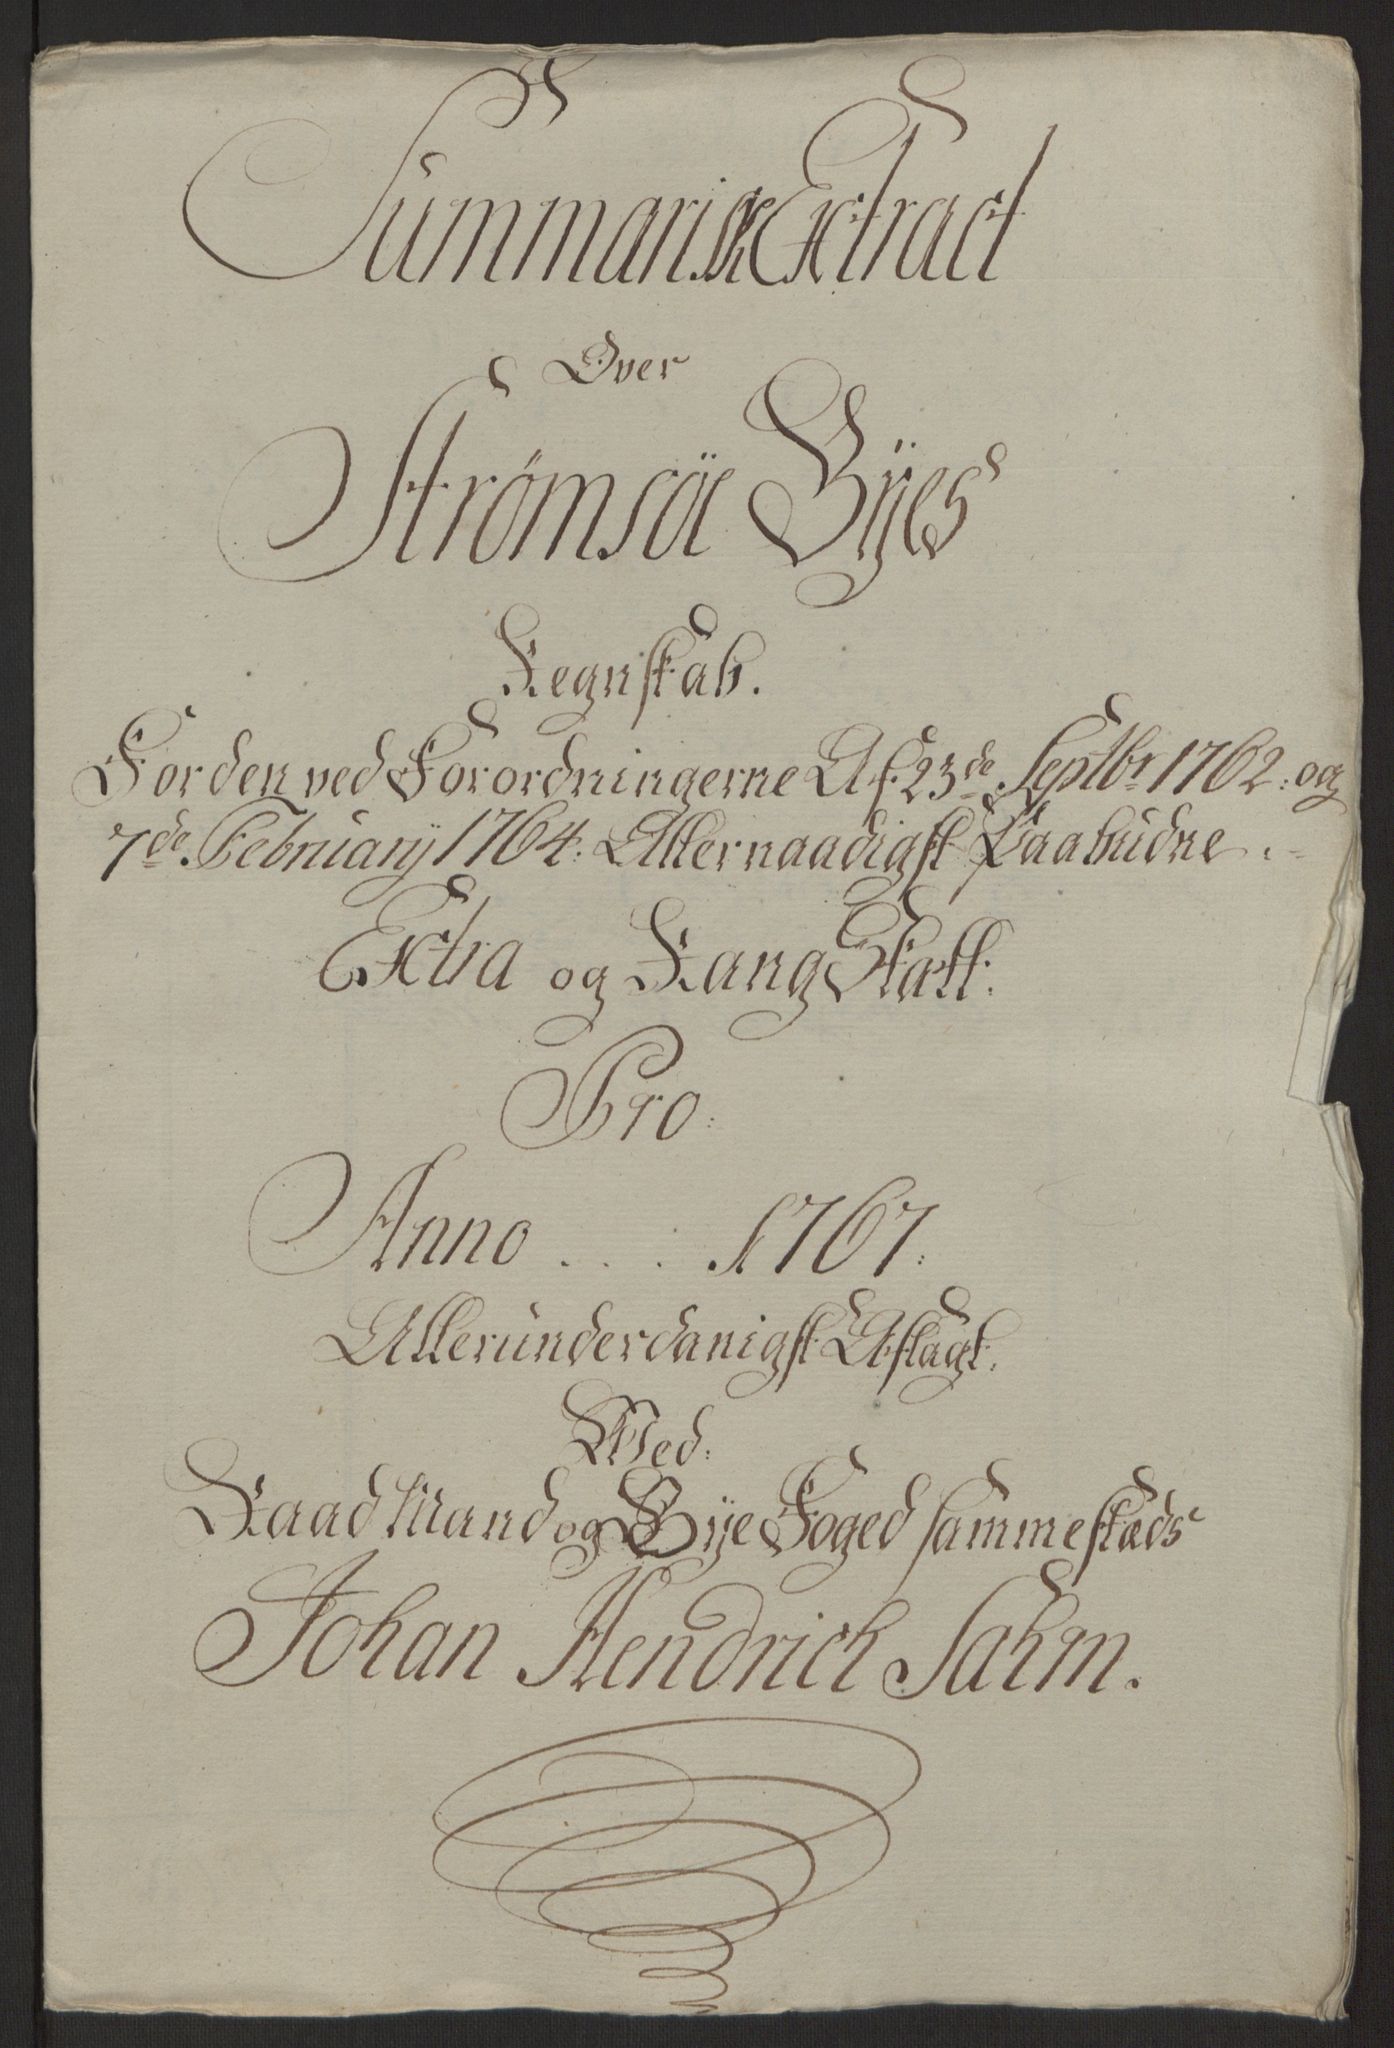 Summarisk Extract
Over
Strømsöe Bÿes
Regnskab.
For den ved Forordningerne Af 23de Septbr 1762. og
7de Februarij 1764. Allernaadigst Paabudne
Extra og Rang Skatt.
Pro
Anno . . . 1767.
Allerunderdanigst Aflagt.
Med:
Raadmand og Bÿe Foged sammestæds
Johan Hendrich Sahm.